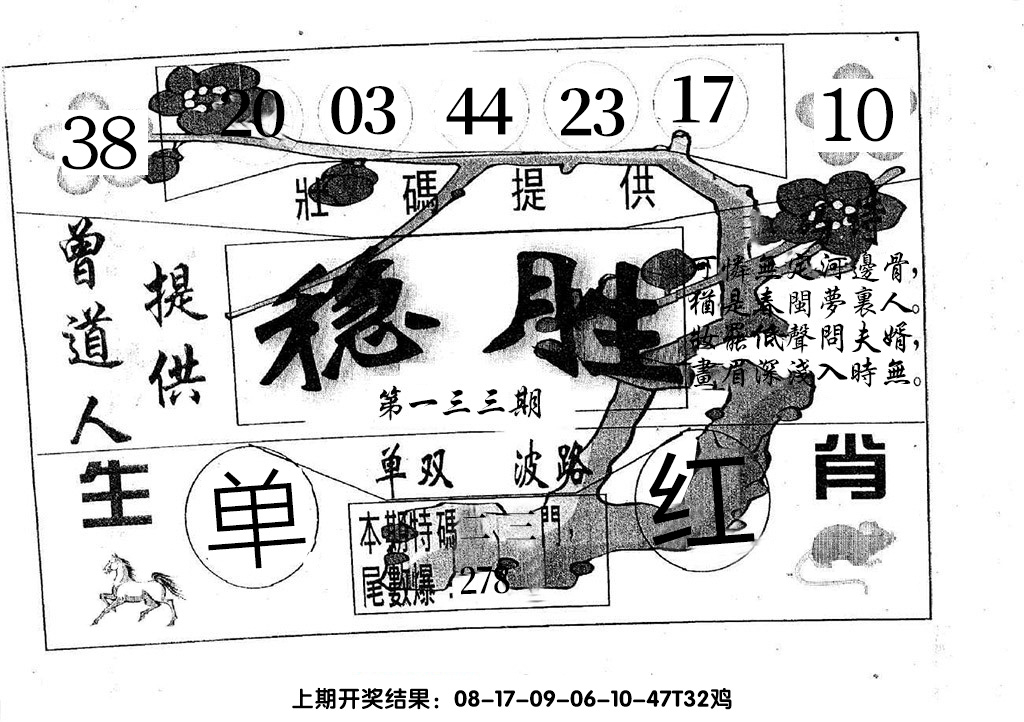 38 20 03 44 23 17 10
壯碼提供
曾道人
提供
稳胜
第一三三期
可憐無定河邊骨，
猶是春閨夢裏人。
妝罷低聲問夫婿，
畫眉深淺入時無。
单双 波路
生肖
单
红
本期特碼二、三門，
尾數爆：278
上期开奖结果：08-17-09-06-10-47T32鸡